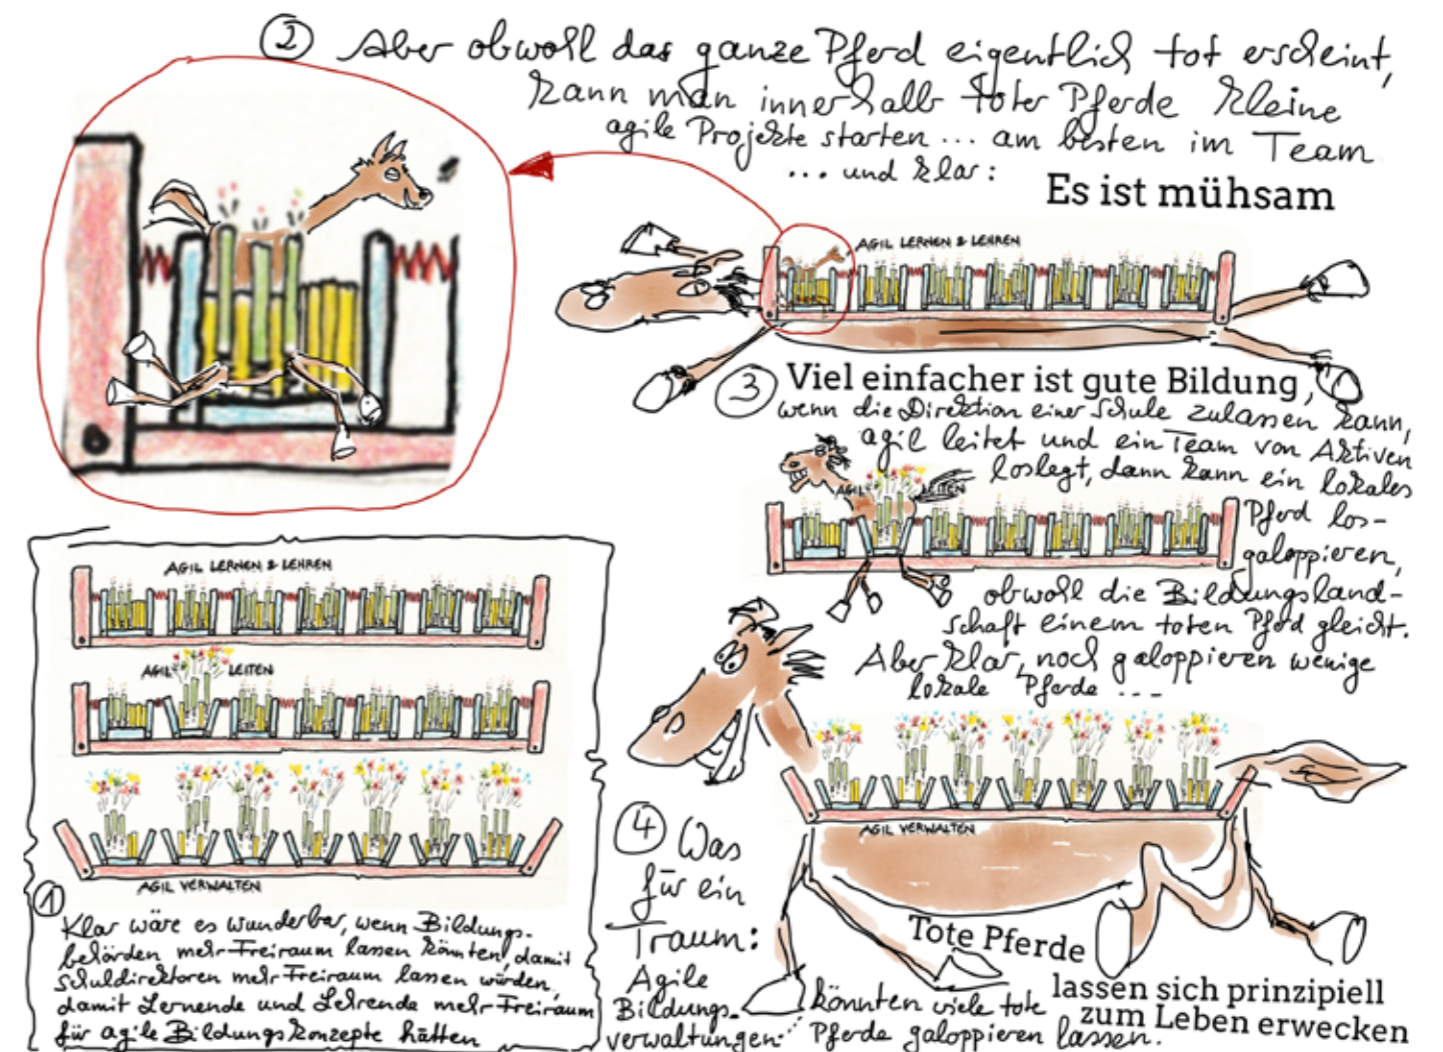 ② Aber obwohl das ganze Pferd eigentlich tot erscheint,
kann man innerhalb toter Pferde kleine
agile Projekte starten ... am besten im Team
... und klar:
Es ist mühsam
AGIL LERNEN & LEHREN
③ Viel einfacher ist gute Bildung,
wenn die Direktion einer Schule zulassen kann,
agil leitet und ein Team von Aktiven
loslegt, dann kann ein lokales
AGIL LEITEN
Pferd los-
galoppieren,
obwohl die Bildungsland-
schaft einem toten Pferd gleicht.
Aber klar, noch galoppieren wenige
lokale Pferde ...
AGIL LERNEN & LEHREN
AGIL LEITEN
AGIL VERWALTEN
① Klar wäre es wunderbar, wenn Bildungs-
behörden mehr Freiraum lassen könnten, damit
Schuldirektoren mehr Freiraum lassen würden,
damit Lernende und Lehrende mehr Freiraum
für agile Bildungskonzepte hätten
AGIL VERWALTEN
④ Was
für ein
Traum:
Agile
Bildungs-
verwaltungen
könnten viele tote
Pferde galoppieren lassen.
Tote Pferde
lassen sich prinzipiell
zum Leben erwecken